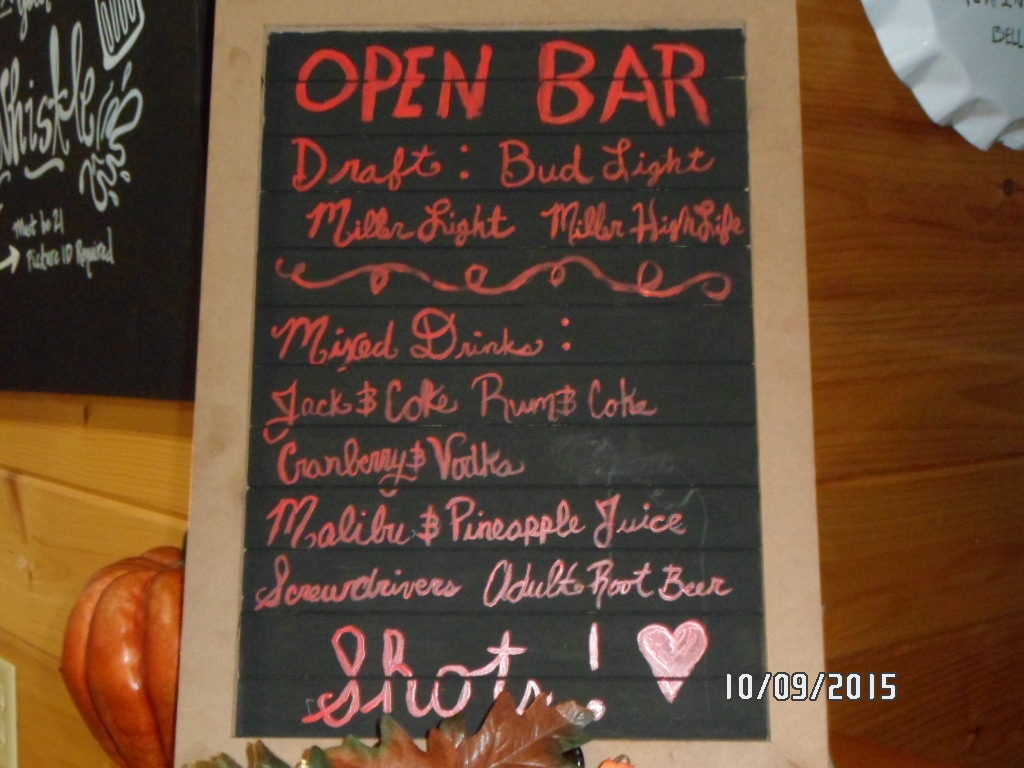 Whistle
Must be 21
Picture ID Required
OPEN BAR
Draft: Bud Light
Miller Light Miller High Life
Mixed Drinks:
Jack & Coke Rum & Coke
Cranberry & Vodka
Malibu & Pineapple Juice
Screwdrivers Adult Root Beer
Shots!
BELL
10/09/2015